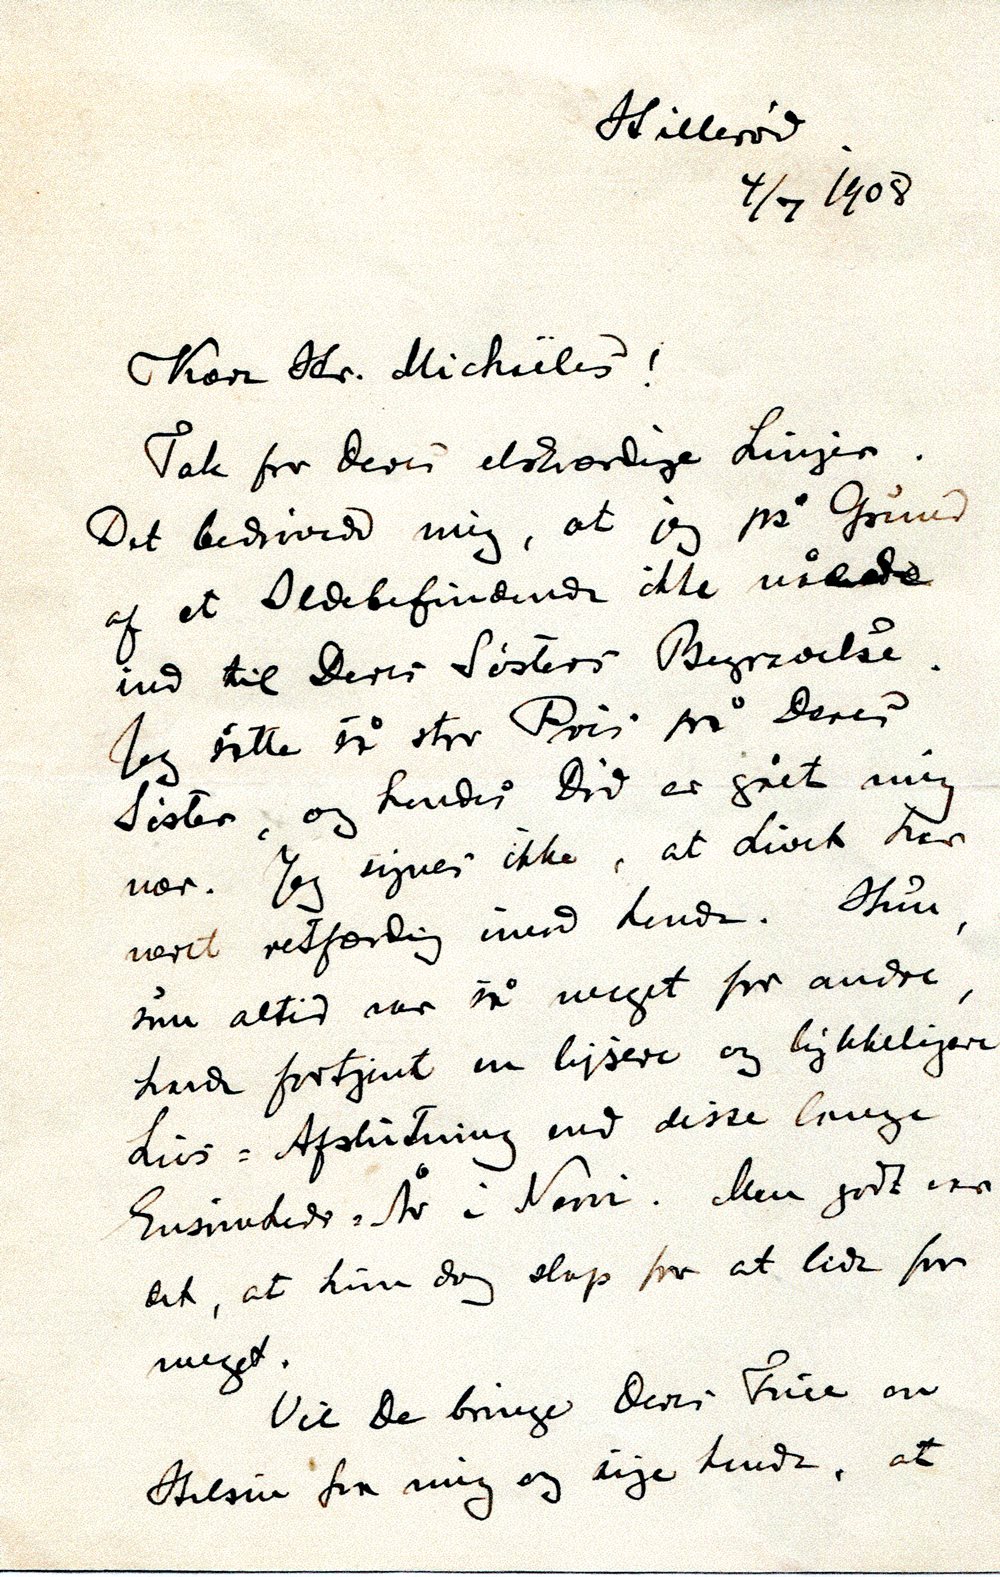 Hillerød
4/7 1908
Kære Hr. Michaëlis!
Tak for Deres elskværdige Linjer.
Det bedrøved mig, at jeg på Grund
af et Ildebefindende ikke nåede
ind til Deres Søsters Begravelse.
Jeg satte så stor Pris på Deres
Søster, og hendes Død er gået mig
nær. Jeg synes ikke, at Livet har
været retfærdig imod hende. Hun,
som altid var så meget for andre,
havde fortjent en lysere og lykkeligere
Livs=Afslutning end disse lange
Ensomheds=År i Nervi. Men godt var
det, at hun dog slap for at lide for
meget.
Vil De bringe Deres Frue en
Hilsen fra mig og sige hende, at